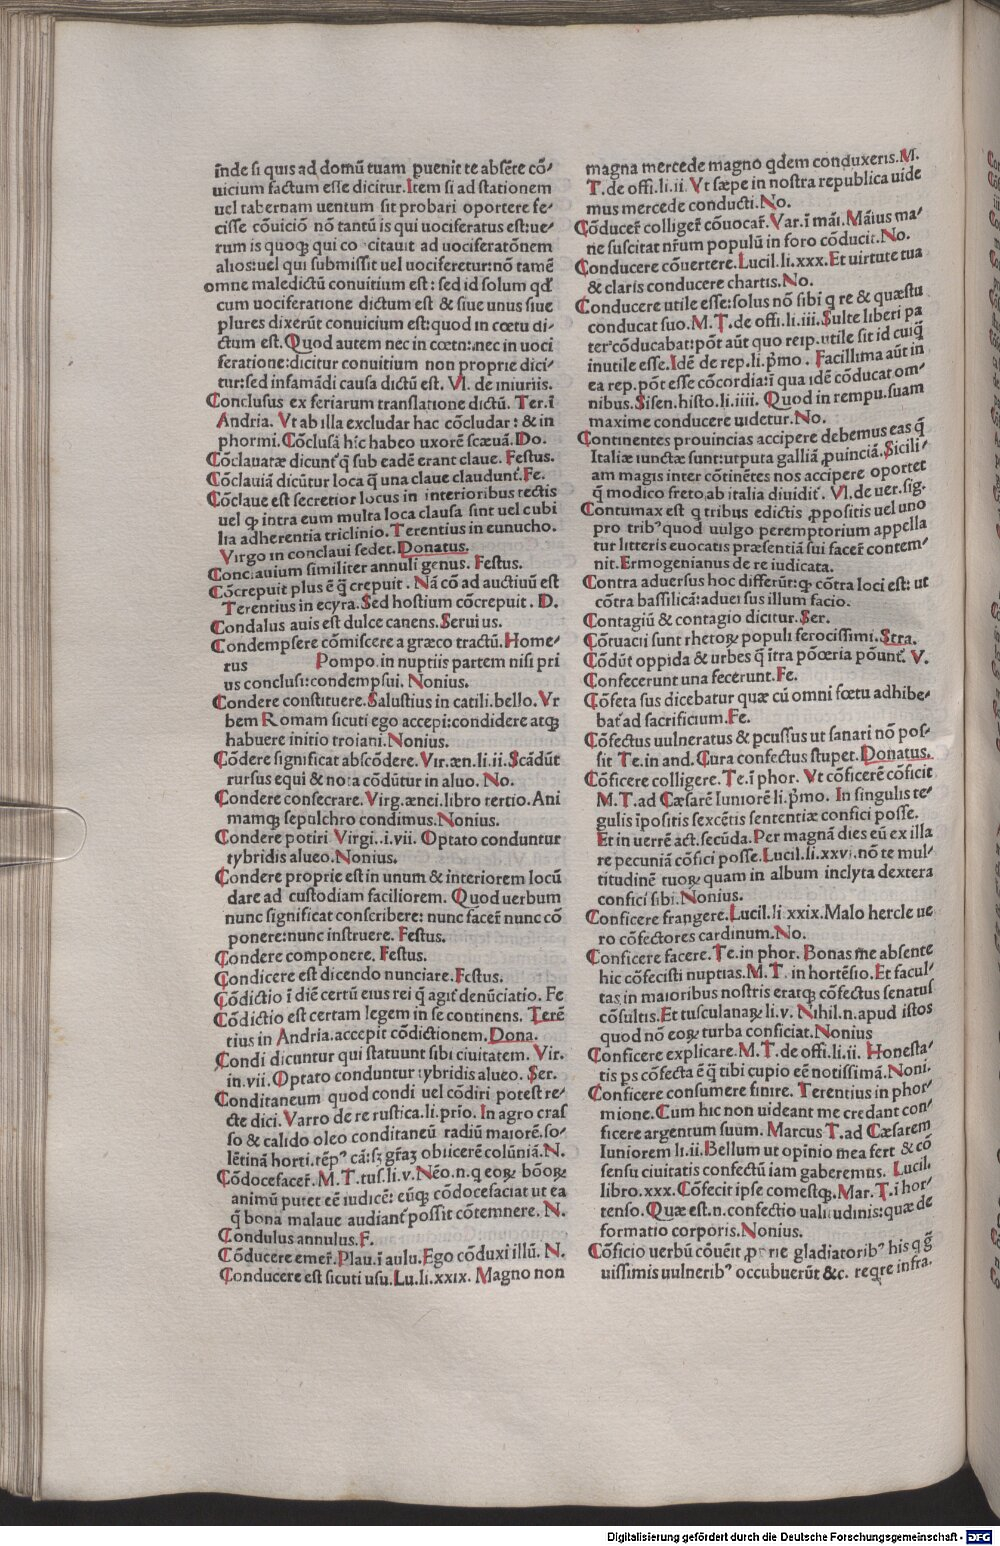 īnde si quis ad domū tuam puenit te absēte cō⸗
uicium factum esse dicitur. Item si ad stationem
uel tabernam uentum sit probari oportere fe⸗
cisse cōuiciō nō tantū is qui uociferatus est: ue⸗
rum is quoq; qui co citauit ad uociferatōnem
alios: uel qui submissit uel uociferetur: nō tamē
omne maledictū conuitium est: sed id solum qđ
cum uociferatione dictum est & siue unus siue
plures dixerūt conuicium est: quod in cœtu di⸗
ctum est. Quod autem nec in cœtn: nec in uoci
feratione: dicitur conuitium non proprie dici⸗
tur: sed infamādi causa dictū est. Vl. de iniuriis.
Conclusus ex feriarum translatione dictū. Ter. ī
Andria. Vt ab illa excludar hac cōcludar: & in
phormi. Cōclusā hīc habeo uxorē scæuā. Do.
Cōclauatæ dicunt̄ q̄ sub eadē erant claue. Festus.
Cōclauiā dicūtur loca q̄ una claue claudunt̄. Fe.
Cōclaue est secretior locus in interioribus tectis
uel qp intra eum multa loca clausa sint uel cubi
lia adherentia triclinio. Terentius in eunucho.
Virgo in conclaui sedet. Donatus.
Conclauium similiter annuli genus. Festus.
Cōcrepuit plus ē q̄ crepuit. Nā cō ad auctiuū est
Terentius in ecyra. Sed hostium cōcrepuit. D.
Condalus auis est dulce canens. Seruius.
Condempsere cōmiscere a græco tractū. Home⸗
rus Pompo. in nuptiis partem nisi pri
us conclusi: condempsui. Nonius.
Condere constituere. Salustius in catili. bello. Vr
bem Romam sicuti ego accepi: condidere atq;
habuere initio troiani. Nonius.
Cōdere significat abscōdere. Vir. æn. li. ii. Scādūt
rursus equi & nota cōdūtur in aluo. No.
Condere consecrare. Virg. ænei. libro tertio. Ani
mamq; sepulchro condimus. Nonius.
Condere potiri Virgi.. i. vii. Optato conduntur
tybridis alueo. Nonius.
Condere proprie est in unum & interiorem locū
dare ad custodiam faciliorem. Quod uerbum
nunc significat conscribere: nunc facer̄ nunc cō
ponere: nunc instruere. Festus.
Condere componere. Festus.
Condicere est dicendo nunciare. Festus.
Cōdictio ī diē certū eius rei q̄ agit̄ denūciatio. Fe
Cōdictio est certam legem in se continens. Terē
tius in Andria. accepit cōdictionem. Dona.
Condi dicuntur qui statuunt sibi ciuitatem. Vir.
in. vii. Optato conduntur tybridis alueo. Ser.
Conditaneum quod condi uel cōdiri potest re⸗
cte dici. Varro de re rustica. li. prio. In agro cras
so & calido oleo conditaneū radiū maiorē. so⸗
lētinā horti. tēpꝰ cā: sꝫ gr̄aꝫ obiicerē colūniā. N.
Cōdocefacer̄. M. T. tus. li. v. Nēo. n. q eoꝝ bōoꝝ
animū putet eē iudicē: eūq; cōdocefaciat ut ea
q̄ bona malaue audiant̄ possit cōtemnere. N.
Condulus annulus. F.
Cōducere emer̄. Plau. ī aulu. Ego cōduxi illū. N.
Conducere est sicuti usu. Lu. li. xxix. Magno non
magna mercede magno qdem conduxeris. M.
T. de offi. li. ii. Vt sæpe in nostra republica uide
mus mercede conducti. No.
Cōducer̄ colliger̄ cōuocar̄. Var. ī māi. Māius ma⸗
ne suscitat nr̄um populū in foro cōducit. No.
Conducere cōuertere. Lucil. li. xxx. Et uirtute tua
& claris conducere chartis. No.
Conducere utile esse: solus nō sibi q re & quæstu
conducat suo. M. T. de offi. li. iii. Sulte liberi pa
terᵉ cōducabat: pōt aūt quo reip. utile sit id cuiq̄
inutile esse. Idē de rep. li. p̄mo. Facillima aūt in
ea rep. pōt esse cōcordia: ī qua idē cōducat om⸗
nibus. Sisen. histo. li. iiii. Quod in rempu. suam
maxime conducere uidetur. No.
Continentes prouincias accipere debemus eas q̄
Italiæ iunctæ sunt: utputa galliā ꝓuinciā. Sicili⸗
am magis inter cōtinētes nos accipere oportet
q̄ modico freto ab italia diuidit̄. Vl. de uer. sig.
Contumax est q tribus edictis ꝓpositis uel uno
pro tribꝰ quod uulgo peremptorium appella
tur litteris euocatis præsentiā sui facer̄ contem⸗
nit. Ermogenianus de re iudicata.
Contra aduersus hoc differūt: qp cōtra loci est: ut
cōtra bassilicā: aduersus illum facio.
Contagiū & contagio dicitur. Ser.
Cōtuacii sunt rhetoꝝ populi ferocissimi. Stra.
Cōdūt oppida & urbes q̄ ītra pōœria pōunt̄. V.
Confecerunt una fecerunt. Fe.
Cōfeta sus dicebatur quæ cū omni fœtu adhibe⸗
bat̄ ad sacrificium. Fe.
Cōfectus uulneratus & pcussus ut sanari nō pos⸗
sit Te. in and. Cura confectus stupet. Donatus.
Cōficere colligere. Te. ī phor. Vt cōficerē cōficit
M. T. ad Cæsarē Iuniorē li. p̄mo. In singulis re⸗
gulis īpositis sexcētis sententiæ confici posse.
Et in uerrē act. secūda. Per magnā dies eū ex illa
re pecuniā cōfici posse. Lucil. li. xxvi. nō te mul⸗
titudinē tuoꝝ quam in album inclyta dextera
confici sibi. Nonius.
Conficere frangere. Lucil. li xxix. Malo hercle ue
ro cōfectores cardinum. No.
Conficere facere. Te. in phor. Bonas me absente
hic cōfecisti nuptias. M. T. in hortēsio. Et facul⸗
tas in maioribus nostris eratq; cōfectus senatus
cōsultis. Et tusculanaꝝ li. v. Nihil. n. apud istos
quod nō eoꝝ turba conficiat. Nonius
Conficere explicare. M. T. de offi. li. ii. Honesta⸗
tis ps cōfecta ē q̄ tibi cupio eē notissimā. Noni.
Conficere consumere finire. Terentius in phor⸗
mione. Cum hic non uideant me credant con⸗
ficere argentum suum. Marcus T. ad Cæsarem
Iuniorem li. ii. Bellum ut opinio mea fert & cō
sensu ciuitatis confectū iam gaberemus. Lucil.
libro. xxx. Cōfecit ipse comestq;. Mar. T. ī hor⸗
tenso. Quæ est. n. confectio ualitudinis: quæ de
formatio corporis. Nonius.
Cōficio uerbū cōuēit gladiatoribꝰ his q ḡ
uissimis uulneribꝰ occubuerūt &c. reqre infra.
Digitalisierung gefördert durch die Deutsche Forschungsgemeinschaft - DFG